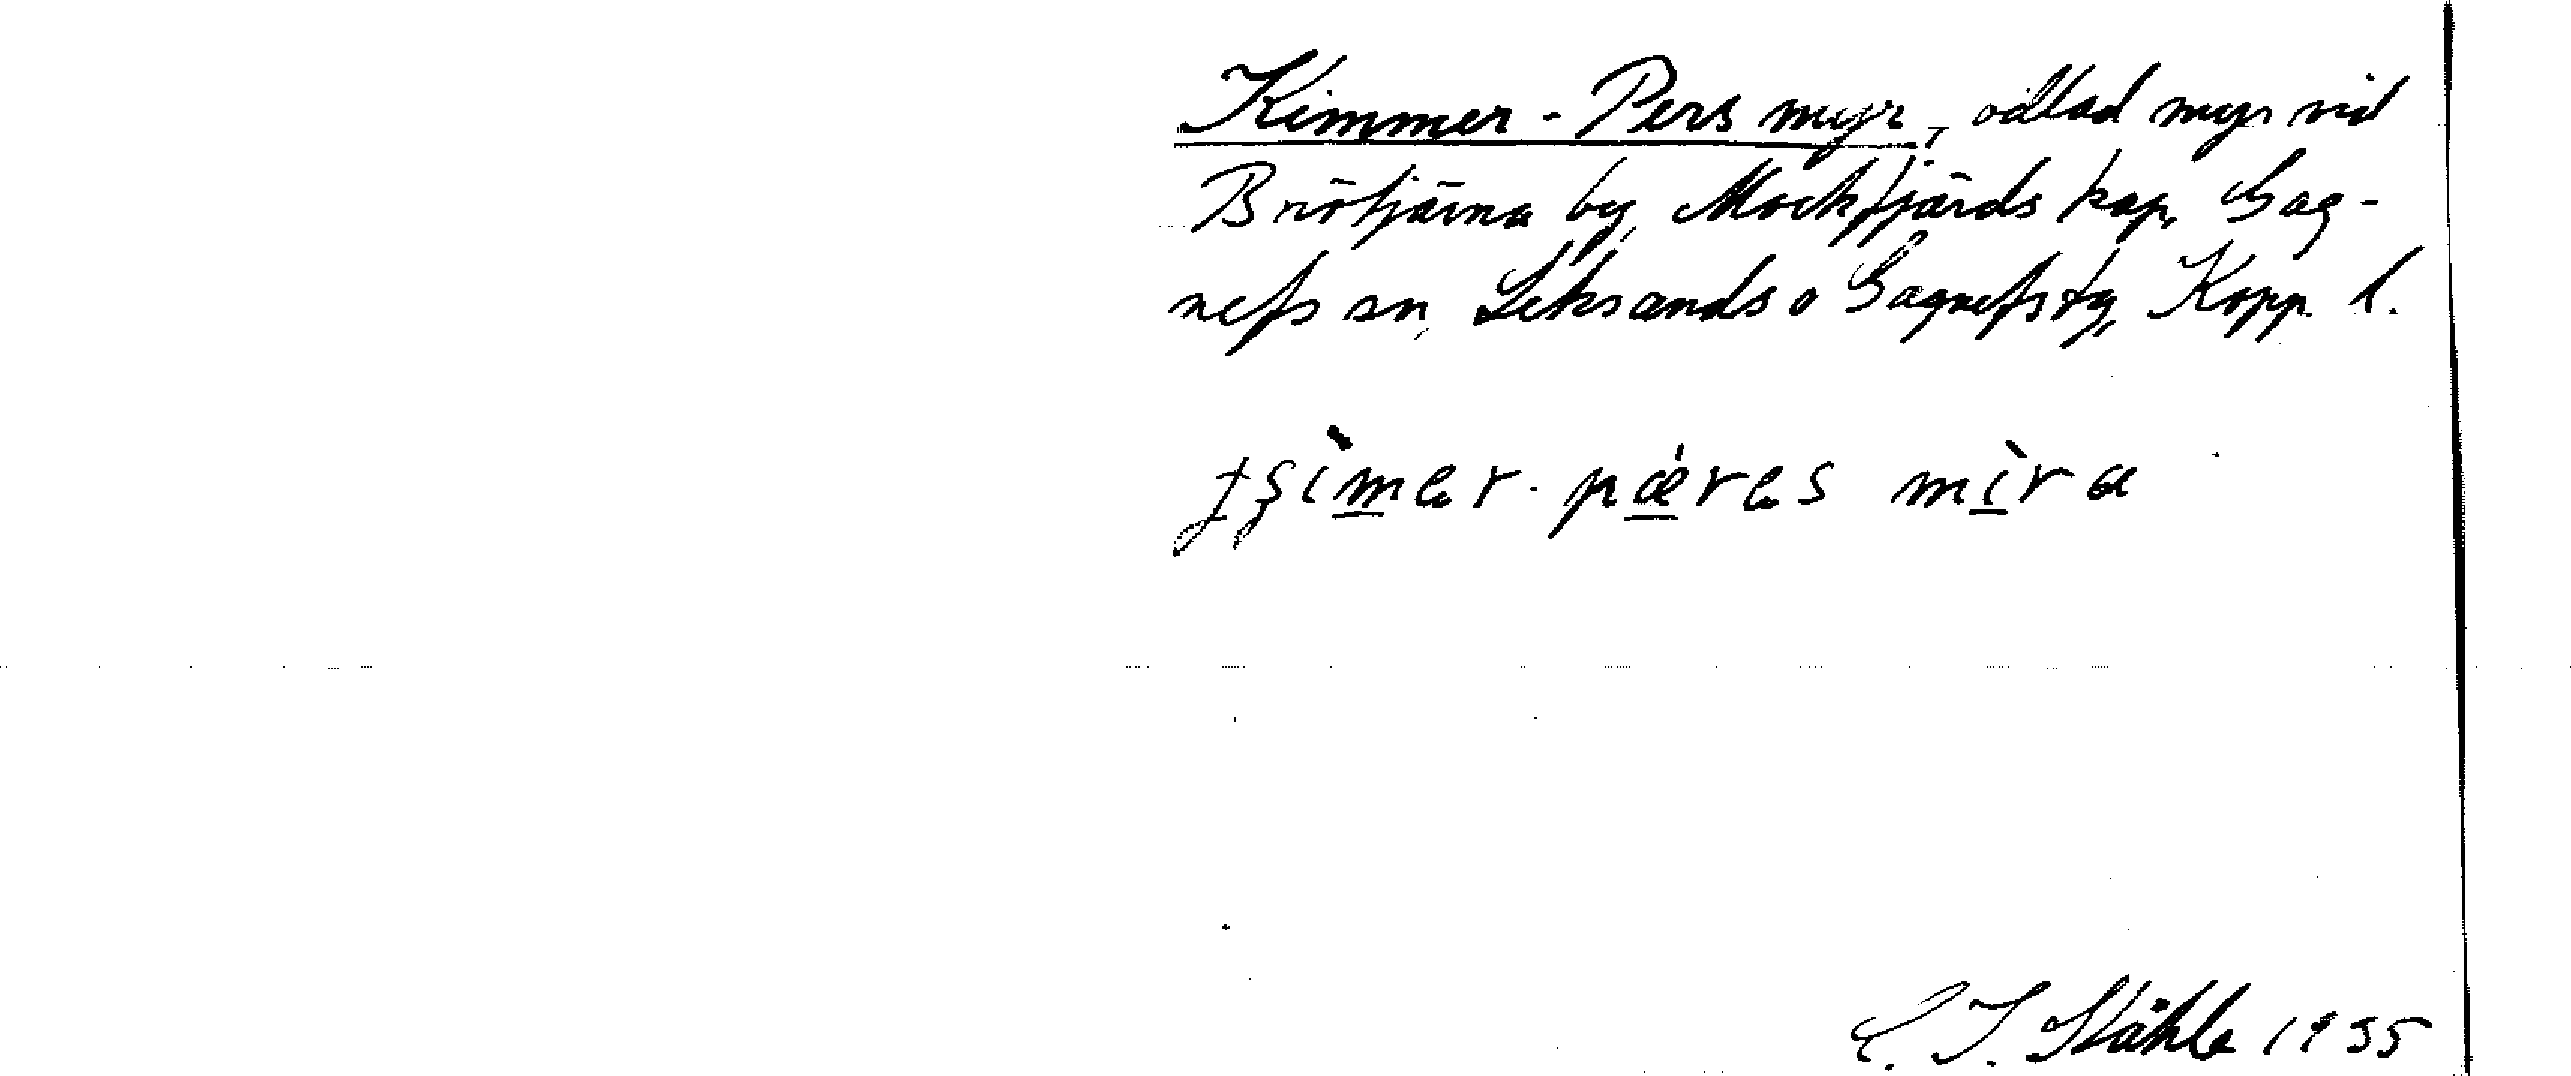 Kimmer-Pers myr, odlad myr vid
Brötjärna by, Mockfjärds kap. Gag-
nefs sn, Leksands o Gagnefs tg, Kopp. l.
tʂìmer-pǽres mìra
C. I. Ståhle 1935